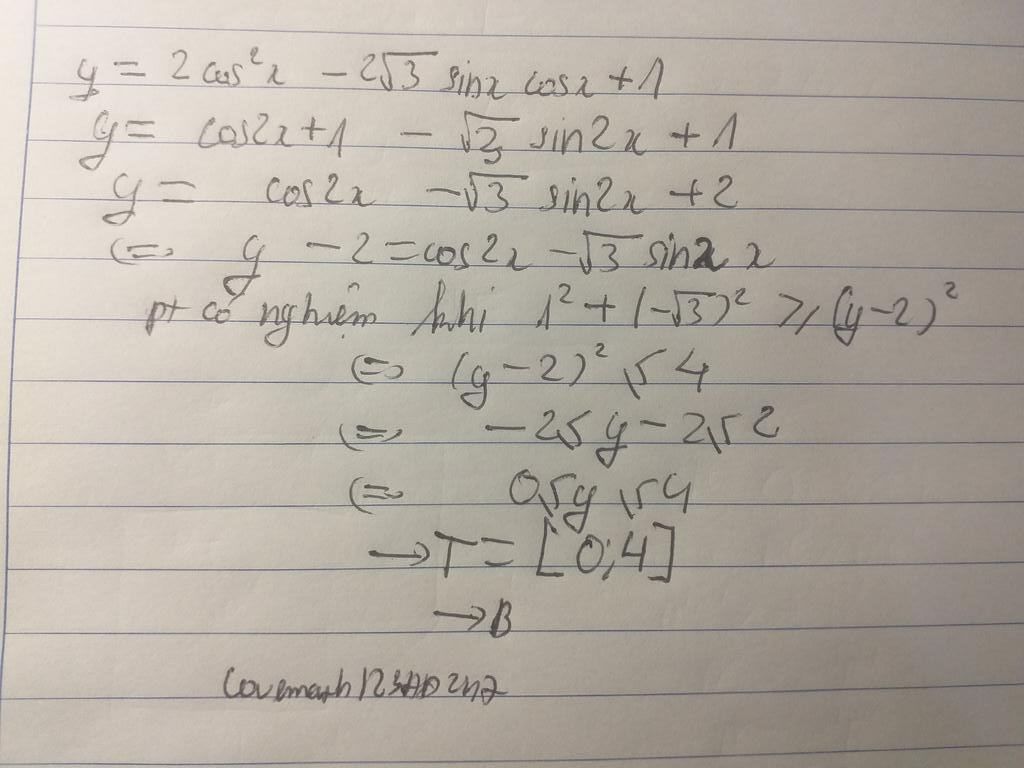 y = 2cos²x - 2√3 sinx cosx + 1
y = cos2x + 1 - √3 sin2x + 1
y = cos2x - √3 sin2x + 2
(=) y - 2 = cos2x - √3 sin2x x
pt có nghiệm khi 1² + (-√3)² ≥ (y-2)²
(=) (y-2)² ≤ 4
(=) -2 ≤ y - 2 ≤ 2
(=) 0 ≤ y ≤ 4
→ T = [0;4]
→ B